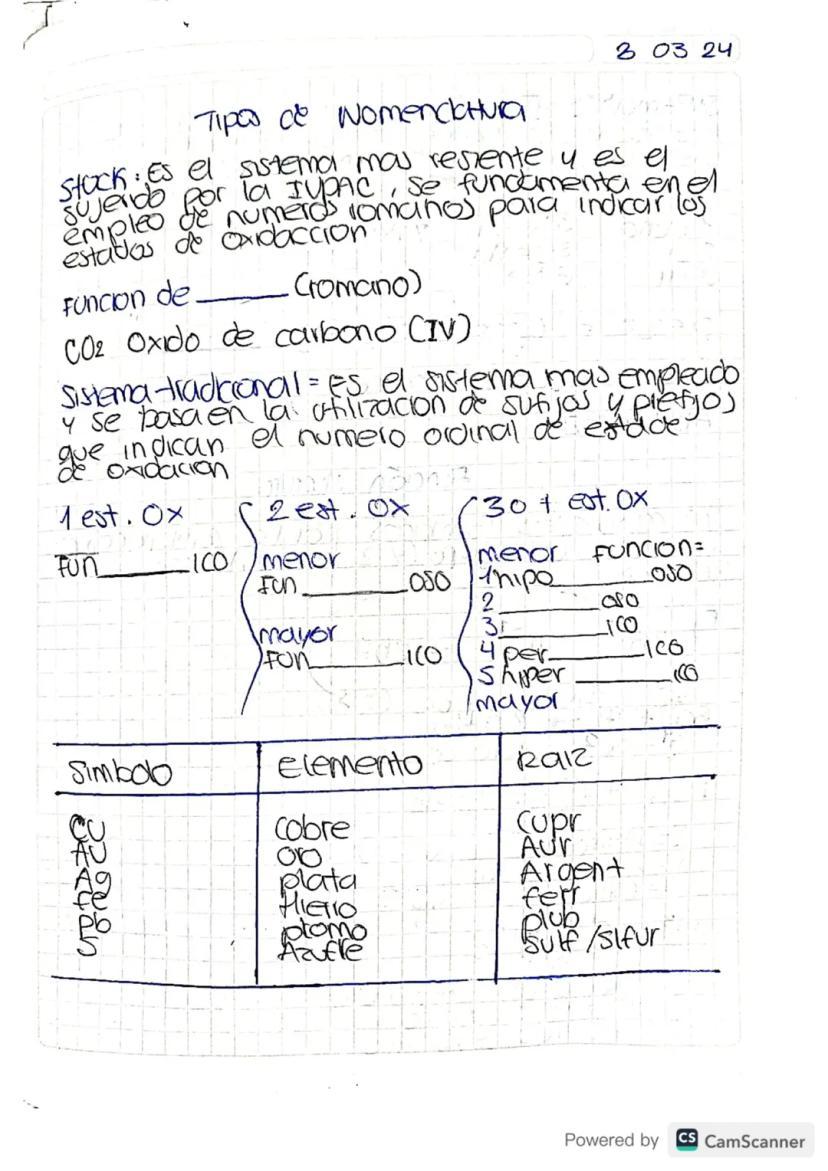 8 03 24
Tipos de Nomenclatura
Stock: Es el sistema mas resiente y es el
sujerido por la IUPAC, se fundamenta en el
empleo de numeros romanos para indicar los
estados de oxidaccion
Funcion de ______ (romano)
CO2 Oxido de carbono (IV)
Sistema tradicional = Es el sistema mas empleado
y se basa en la utilizacion de sufijos y prefijos
que indican el numero ordinal de estade
de oxidacion
1 est. Ox 2 est. Ox 3 o + est. Ox
Fun ______ ico menor menor Funcion=
Fun ______ oso 1 hipo ______ oso
2 ______ oso
mayor 3 ______ ico
Fun ______ ico 4 per ______ ico
5 hiper ______ ico
mayor
Simbolo Elemento Raiz
Cu Cobre Cupr
Au oro Aur
Ag plata Argent
fe Hierro ferr
Pb plomo plub
S Azufre Sulf /Slfur
Powered by CS CamScanner